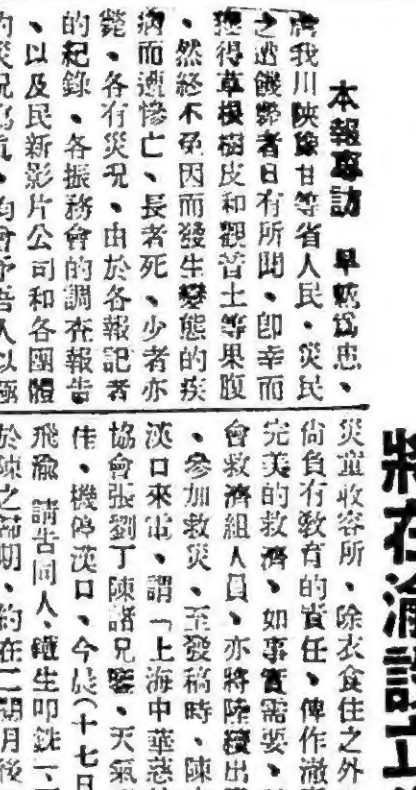 將在渝設立
本報專訪 旱魃爲患、
我川陝豫甘等省人民、災民
之遭饑斃者日有所聞、即幸而
獲得草根樹皮和觀音土等果腹
、然終不免因而發生變態的疾
病而遭慘亡、長者死、少者亦
斃、各有災况、由於各報記者
的紀錄、各振務會的調查報告
、以及民新影片公司和各團體
的災况寫真、均會予吾人以極
災童收容所、除衣食住之外
尙負有敎育的責任、俾作澈
完美的救濟、如事實需要、
會救濟組人員、亦將陸續出
、參加救災、至發稿時、陳
漢口來電、謂「上海中華慈
協會張劉丁陳諸兄鑒、天氣
佳、機停漢口、今晨(十七日
飛渝 請吿同人、鐵生叩銑一、
於陳之歸期、約在二期月後